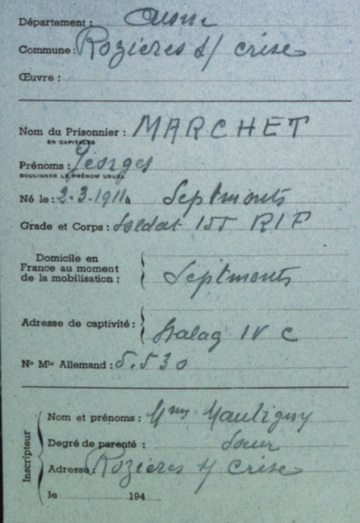 Département : Aisne
Commune : Rozières s/ crise
Œuvre :
Nom du Prisonnier : MARCHET
EN CAPITALES
Prénoms : Georges
SOULIGNER LE PRÉNOM USUEL
Né le : 2-3-1911 à Septmonts
Grade et Corps : Soldat 155 RIF
Domicile en
France au moment
de la mobilisation :
Septmonts
Adresse de captivité : Stalag IV C
Nº Mle Allemand : 5.530
Inscripteur
Nom et prénoms : Mme Mautigny
Degré de parenté : Soeur
Adresse : Rozières s/ Crise
le 194